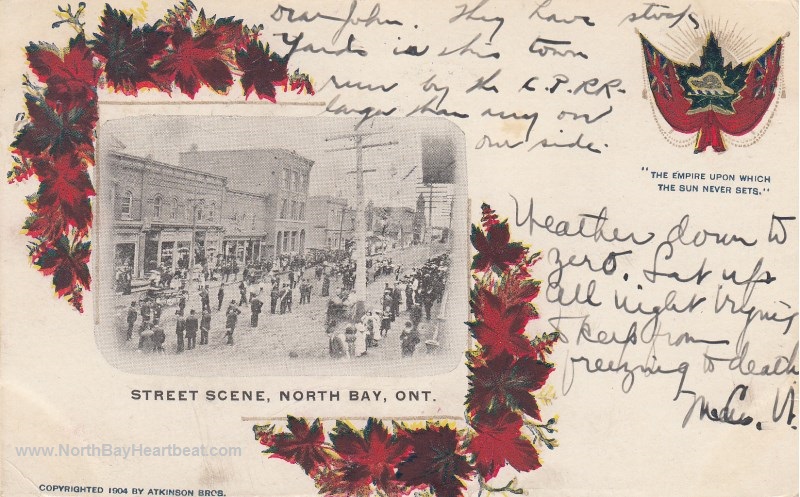 Dear John. They have stock
Yards in this town
run by the C.P.RR.
larger than any on
our side.
"THE EMPIRE UPON WHICH
THE SUN NEVER SETS."
Weather down to
zero. Sat up
all night trying
to keep from
freezing to death
STREET SCENE, NORTH BAY, ONT.
www.NorthBayHeartbeat.com
COPYRIGHTED 1904 BY ATKINSON BROS.